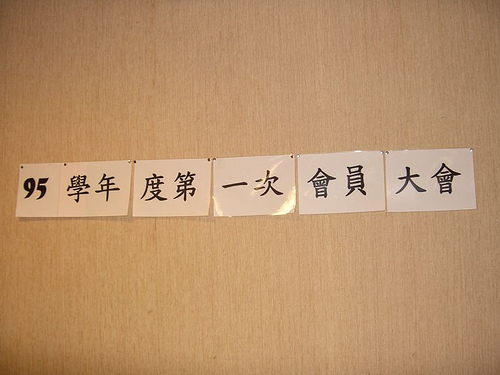 95學年度第一次會員大會